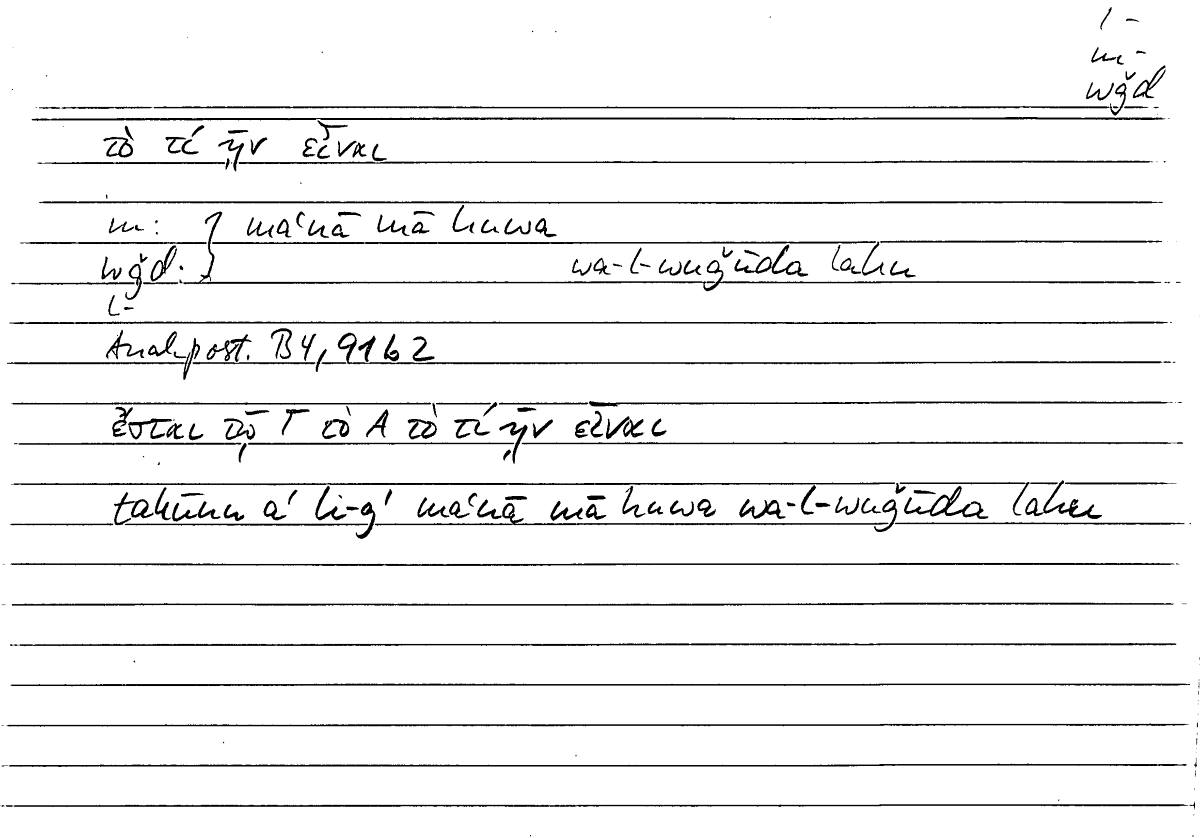 l-
m-
wǧd
τὸ τί ἦν εἶναι
m: } maʿnā mā huwa
wǧd: } wa-l-wuǧūda lahu
l-
Anal. post. B4, 91b2
ἔσται τῷ Γ τὸ A τὸ τί ἦν εἶναι
takūnu a' li-g' maʿnā mā huwa wa-l-wuǧūda lahu